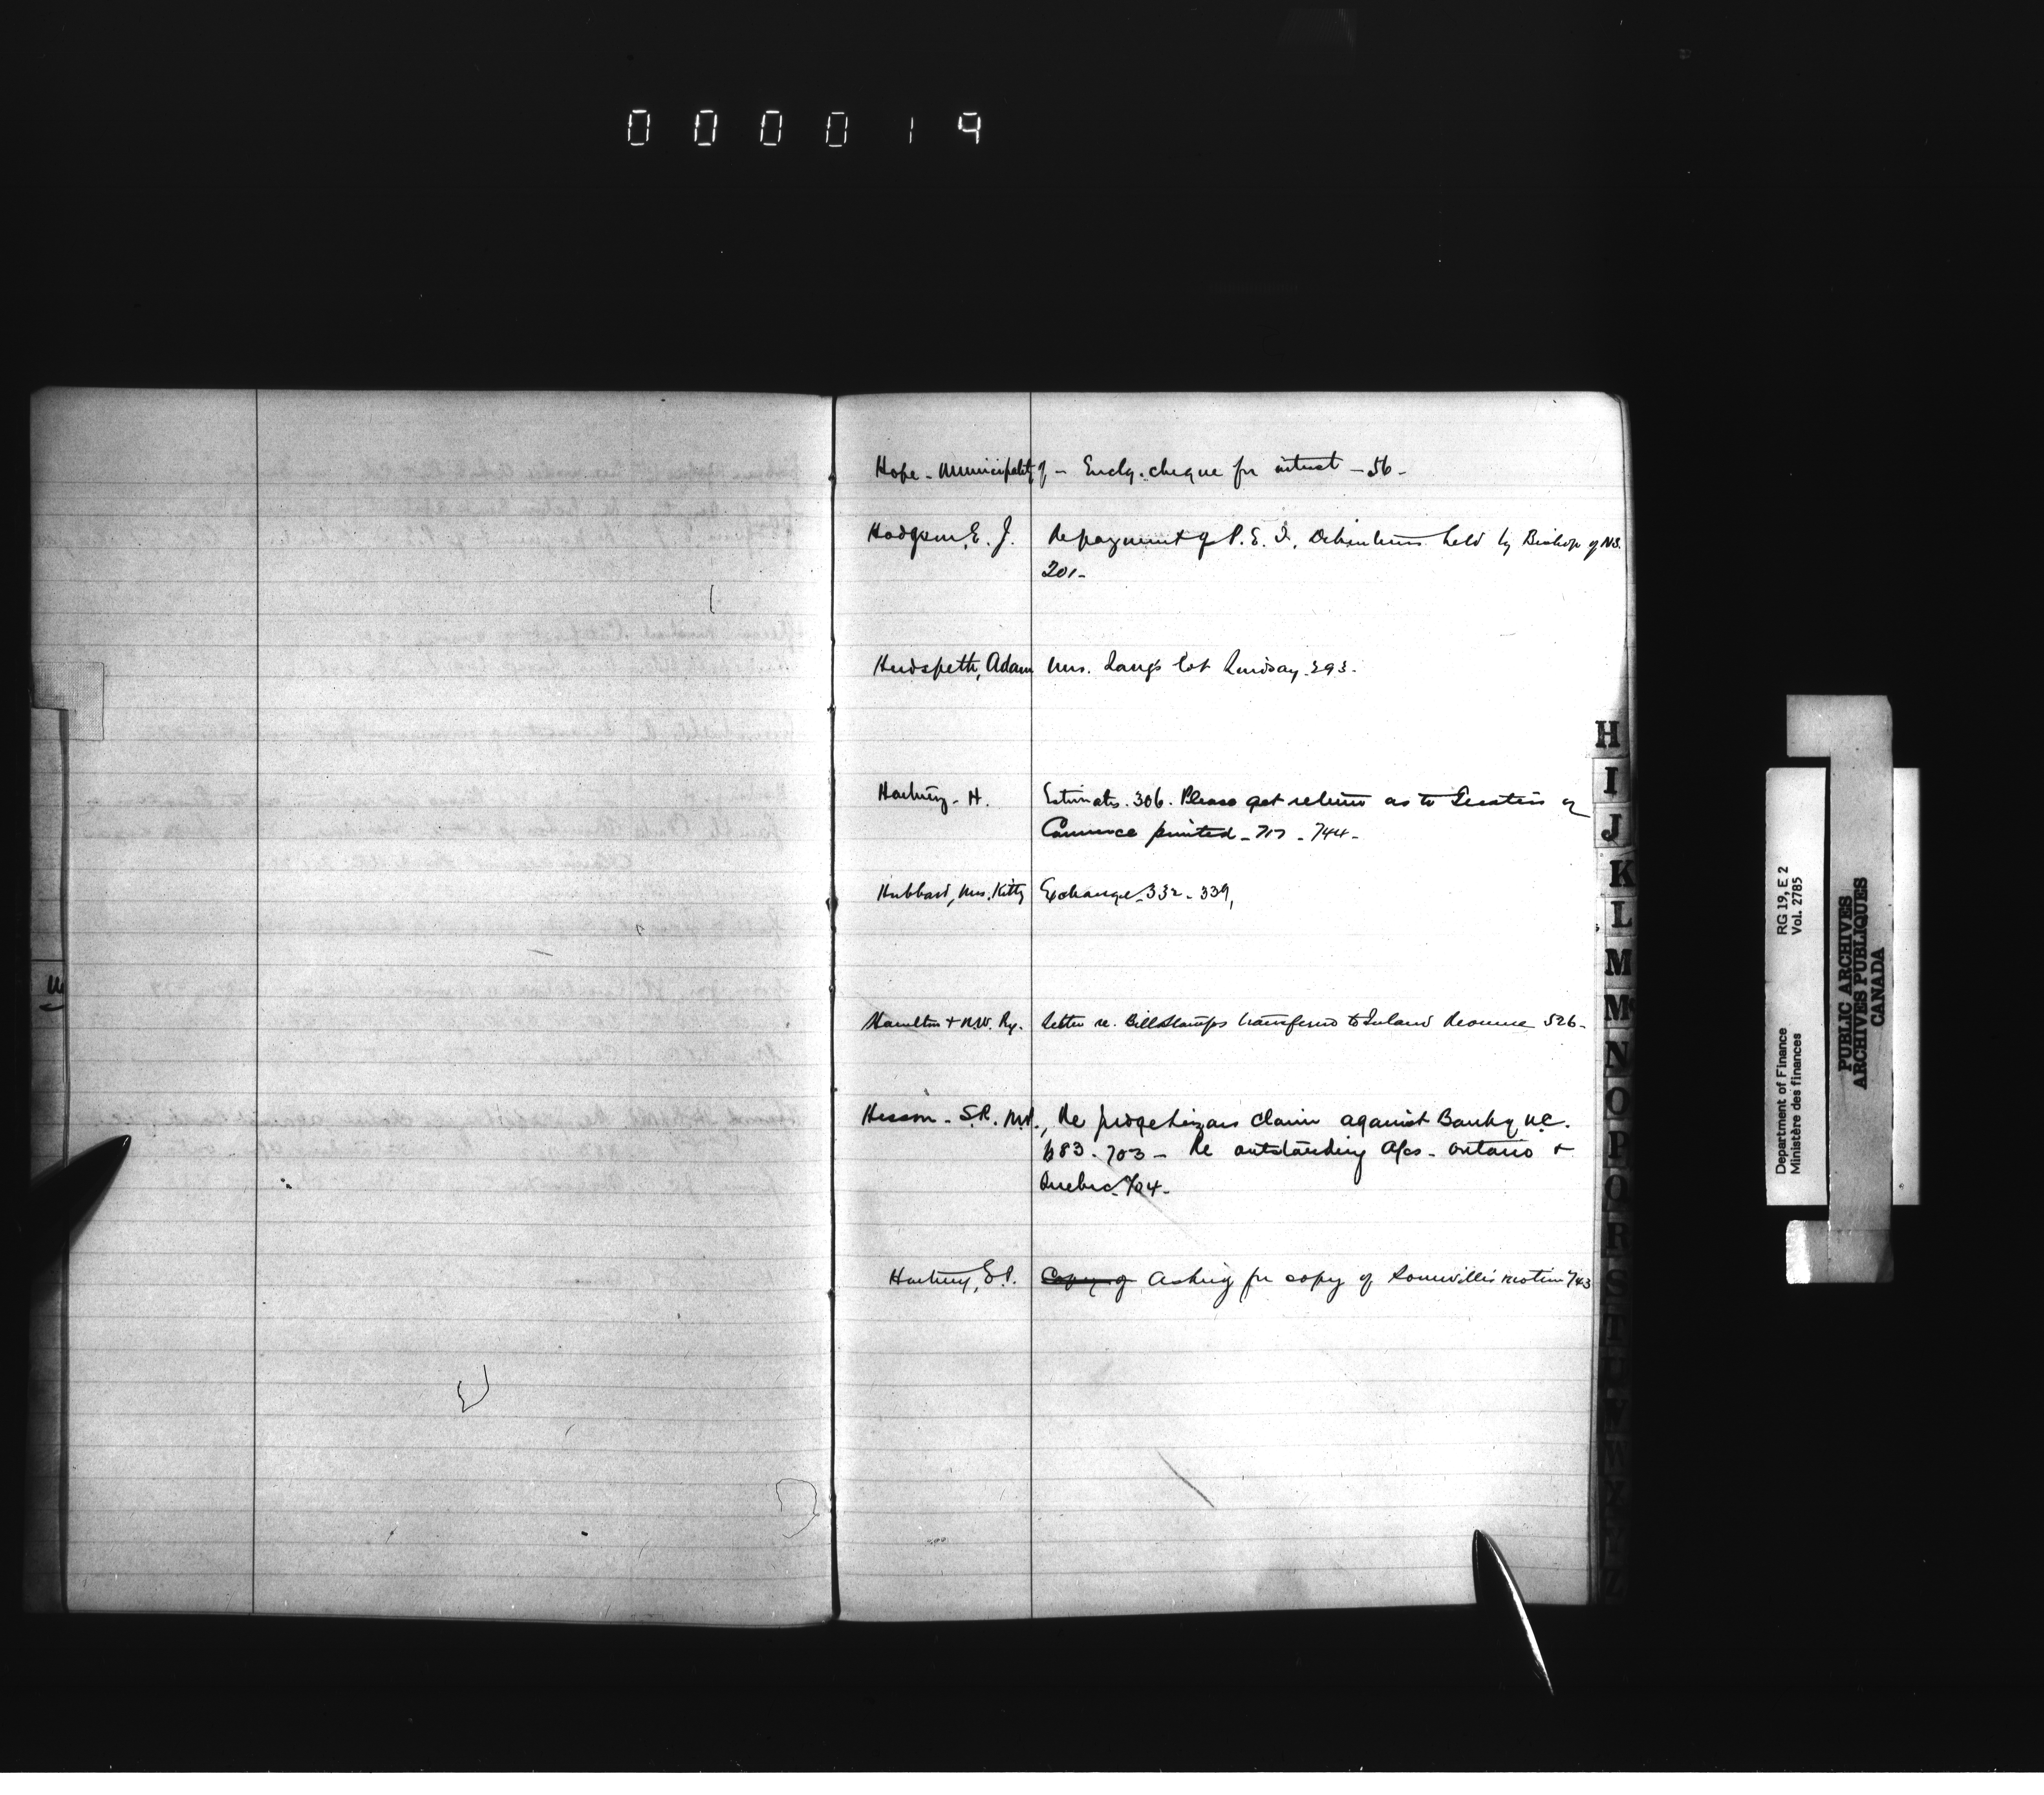 000019
Hope - Municipality of - Enclg. cheque for interest - 56 -
Hodgson, E. J. Repayment of P. E. I. Debentures held by Bishop of N.S.
201 -
Hudspeth, Adam Mrs. Lang's lot Lindsay. 293 -
Hartney - H. Estimates. 306. Please get return as to
Commerce printed - 717 - 744 -
Hubbard, Mrs. Kitty Exchange - 332 - 339,
Hamilton & N.W. Ry. Letter re. Bill Stamps transferred to Inland Revenue 526 -
Hesson - S.R. M.P., Re claim against Bank of U.C.
683 - 703 - Re outstanding A/cs - Ontario &
Quebec - 704 -
Hartney, E.P. Copy of Asking for copy of Somerville's motion 743
H
I
J
K
L
M
Mc
N
O
P
Q
R
S
T
U
V
W
X
Y
Z
RG 19, E 2
Vol. 2785
Department of Finance
Ministère des finances
PUBLIC ARCHIVES
ARCHIVES PUBLIQUES
CANADA